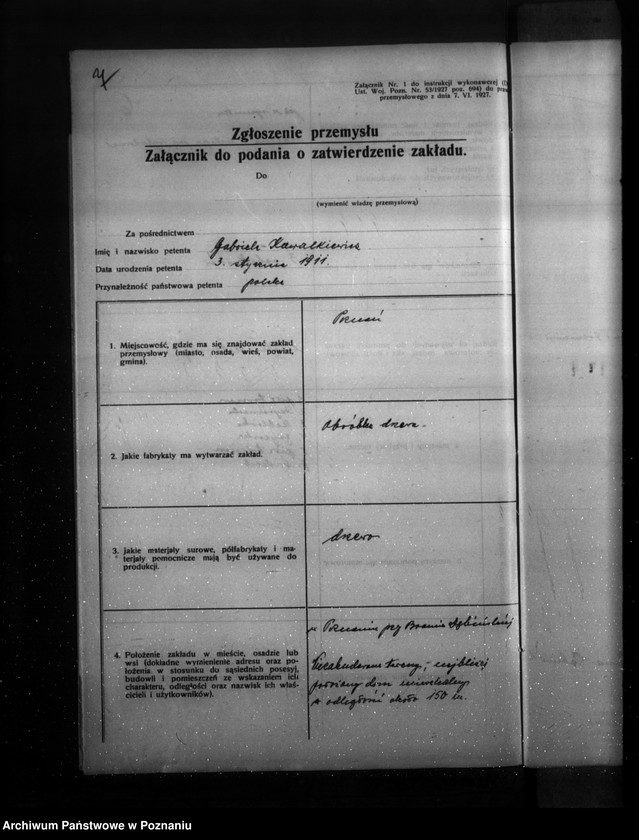 Załącznik Nr. 1 do instrukcji wykonawczej
Ust. Woj. Pozn. Nr. 53/1927 poz. 694) do
przemysłowego z dnia 7. VI. 1927.
Zgłoszenie przemysłu
Załącznik do podania o zatwierdzenie zakładu.
Do
(wymienić władzę przemysłową)
Za pośrednictwem
Imię i nazwisko petenta Gabriel Kawalkiewicz
Data urodzenia petenta 3. stycznia 1911
Przynależność państwowa petenta polska
1. Miejscowość, gdzie ma się znajdować zakład
przemysłowy (miasto, osada, wieś, powiat,
gmina).
Poznań
2. Jakie fabrykaty ma wytwarzać zakład.
Obróbka drzewa.
3. Jakie materjały surowe, półfabrykaty i ma-
terjały pomocnicze mają być używane do
produkcji.
drzewo
4. Położenie zakładu w mieście, osadzie lub
wsi (dokładne wymienienie adresu oraz po-
łożenia w stosunku do sąsiednich posesyj,
budowli i pomieszczeń ze wskazaniem ich
charakteru, odległości oraz nazwisk ich właś-
cicieli i użytkowników).
w Poznaniu przy Bramie Dębińskiej
Niezabudowane tereny, - najbliżej
położony dom mieszkalny
w odległości około 150 m.
Archiwum Państwowe w Poznaniu